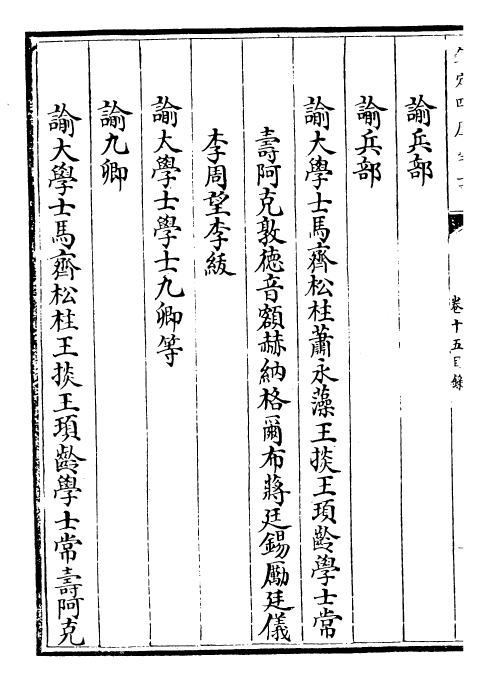 諭兵部
諭兵部
諭大學士馬齊松柱蕭永藻王掞王頊齡學士常
壽阿克敦德音額赫納格爾布蔣廷錫勵廷儀
李周望李紱
諭大學士學士九卿等
諭九卿
諭大學士馬齊松柱王掞王頊齡學士常壽阿克
卷十五目錄